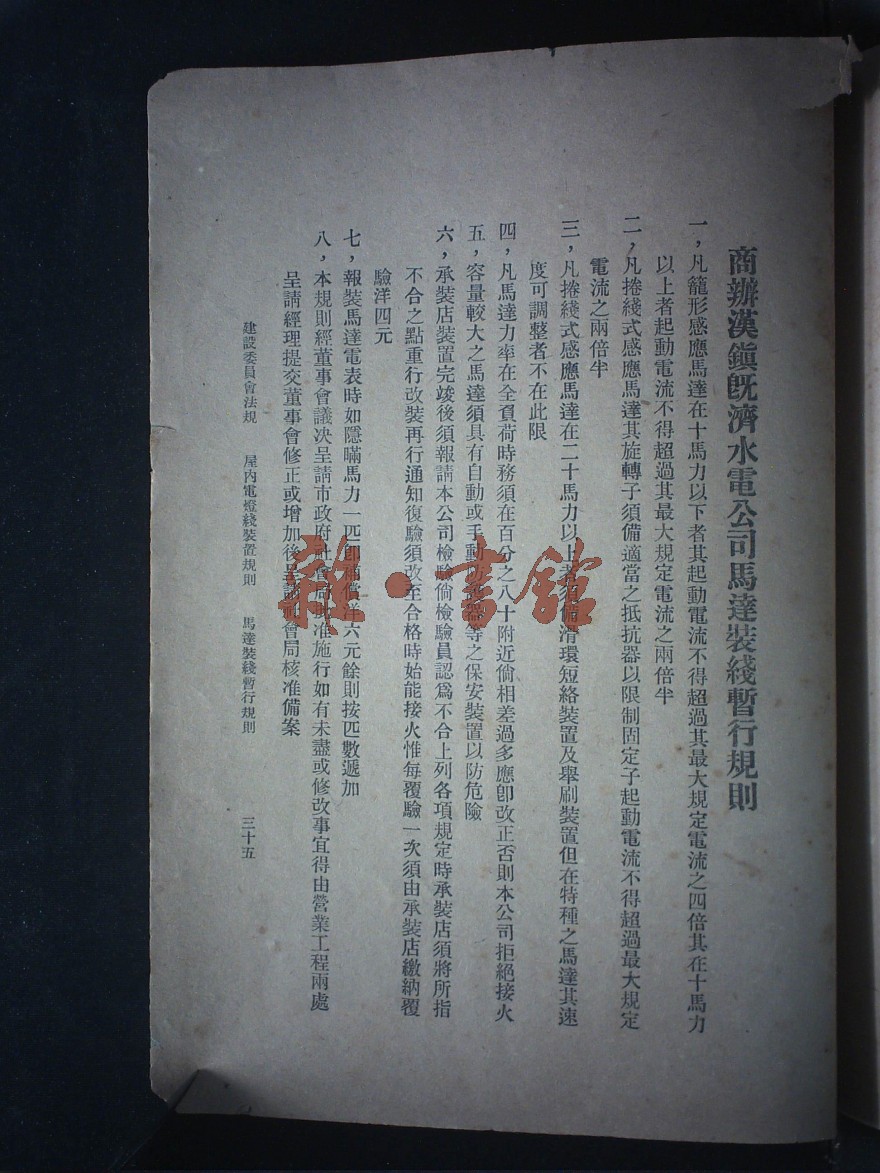 商辦漢鎭旣濟水電公司馬達裝綫暫行規則
一，凡籠形感應馬達在十馬力以下者其起動電流不得超過其最大規定電流之四倍其在十馬力
以上者起動電流不得超過其最大規定電流之兩倍半
二，凡捲綫式感應馬達其旋轉子須備適當之抵抗器以限制固定子起動電流不得超過最大規定
電流之兩倍半
三，凡捲綫式感應馬達在二十馬力以上者須備滑環短絡裝置及舉刷裝置但在特種之馬達其速
度可調整者不在此限
四，凡馬達力率在全負荷時務須在百分之八十附近倘相差過多應卽改正否則本公司拒絕接火
五，容量較大之馬達須具有自動或手動防護器等之保安裝置以防危險
六，承裝店裝置完竣後須報請本公司檢驗倘檢驗員認爲不合上列各項規定時承裝店須將所指
不合之點重行改裝再行通知復驗須改至合格時始能接火惟每覆驗一次須由承裝店繳納覆
驗洋四元
七，報裝馬達電表時如隱瞞馬力一匹卽補償洋六元餘則按匹數遞加
八，本規則經董事會議决呈請市政府社會局批准施行如有未盡或修改事宜得由營業工程兩處
呈請經理提交董事會修正或增加後呈請社會局核准備案
建設委員會法規　屋内電燈綫裝置規則　馬達裝綫暫行規則　三十五
雜·書館